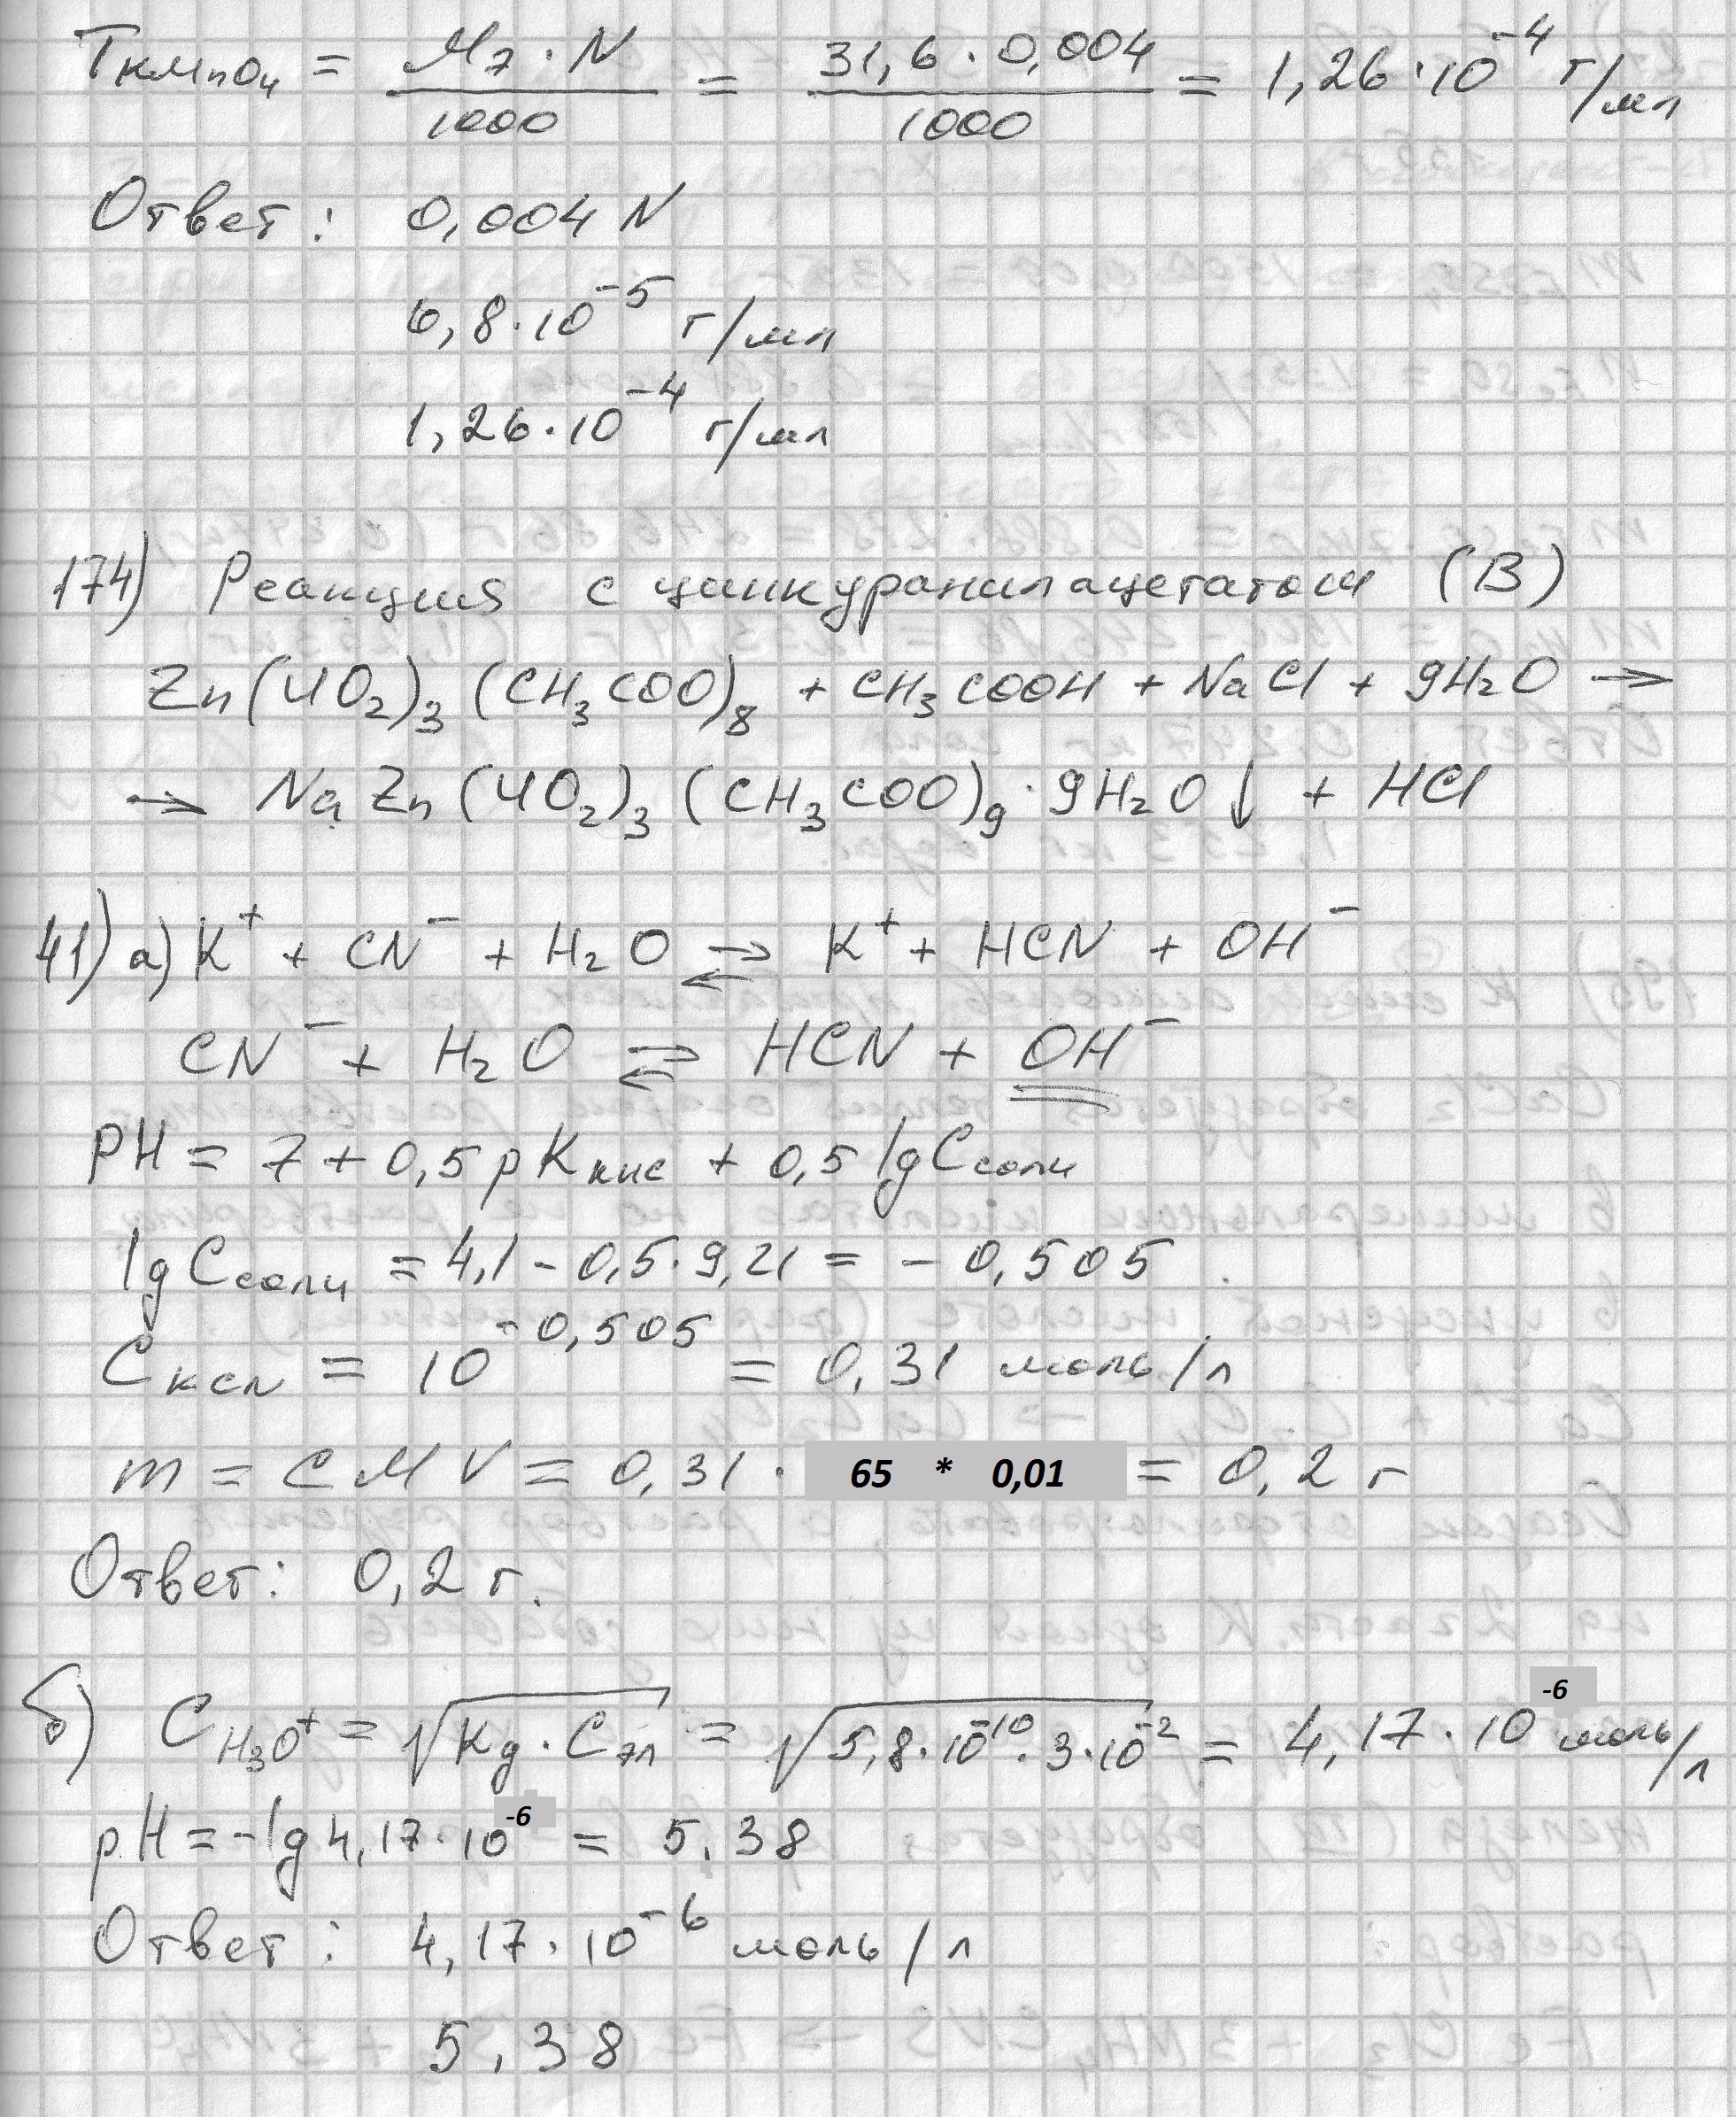 T KMnO₄ = Mэ · N / 1000 = 31,6 · 0,004 / 1000 = 1,26 · 10⁻⁴ г/мл
Ответ: 0,004 N
6,8 · 10⁻⁵ г/мл
1,26 · 10⁻⁴ г/мл
174) Реакция с цинкуранилацетатом (В)
Zn(UO₂)₃(CH₃COO)₈ + CH₃COOH + NaCl + 9H₂O →
→ NaZn(UO₂)₃(CH₃COO)₉ · 9H₂O↓ + HCl
41) а) K⁺ + CN⁻ + H₂O ⇄ K⁺ + HCN + OH⁻
CN⁻ + H₂O ⇄ HCN + OH⁻
PH = 7 + 0,5 pKкис + 0,5 lg Cсоли
lg Cсоли = 4,1 - 0,5 · 9,21 = - 0,505
C KCN = 10^-0,505 = 0,31 моль/л
m = C M V = 0,31 · 65 * 0,01 = 0,2 г
Ответ: 0,2 г.
б) C H₃O⁺ = √(Kд · Cэл) = √(5,8 · 10⁻¹⁰ · 3 · 10⁻²) = 4,17 · 10⁻⁶ моль/л
pH = -lg 4,17 · 10⁻⁶ = 5,38
Ответ: 4,17 · 10⁻⁶ моль/л
5,38